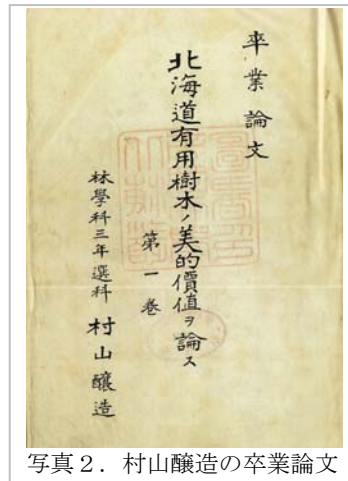 卒業論文
北海道有用樹木ノ美的價値ヲ論ス
第一巻
林學科三年選科 村山釀造
写真２．村山醸造の卒業論文